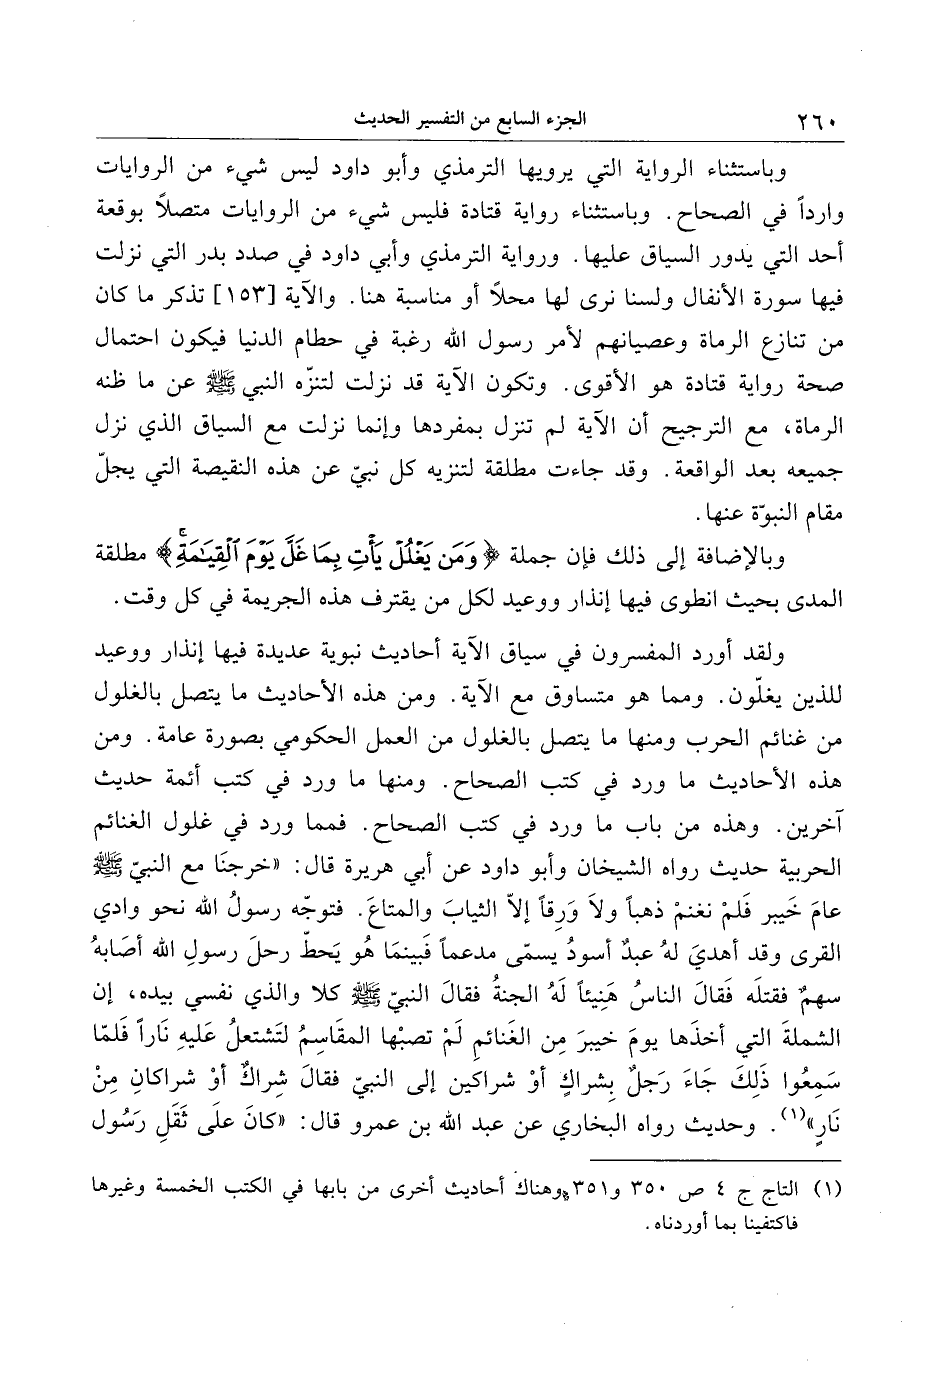 ٢٦٠ الجزء السابع من التفسير الحديث
وباستثناء الرواية التي يرويها الترمذي وأبو داود ليس شيء من الروايات
وارداً في الصحاح. وباستثناء رواية قتادة فليس شيء من الروايات متصلاً بوقعة
أحد التي يدور السياق عليها. ورواية الترمذي وأبي داود في صدد بدر التي نزلت
فيها سورة الأنفال ولسنا نرى لها محلاً أو مناسبة هنا. والآية [١٥٣] تذكر ما كان
من تنازع الرماة وعصيانهم لأمر رسول الله رغبة في حطام الدنيا فيكون احتمال
صحة رواية قتادة هو الأقوى. وتكون الآية قد نزلت لتنزّه النبي ﷺ عن ما ظنه
الرماة، مع الترجيح أن الآية لم تنزل بمفردها وإنما نزلت مع السياق الذي نزل
جميعه بعد الواقعة. وقد جاءت مطلقة لتنزيه كل نبيّ عن هذه النقيصة التي يجلّ
مقام النبوّة عنها.
وبالإضافة إلى ذلك فإن جملة ﴿وَمَن يَغْلُلْ يَأْتِ بِمَا غَلَّ يَوْمَ ٱلْقِيَٰمَةِۚ﴾ مطلقة
المدى بحيث انطوى فيها إنذار ووعيد لكل من يقترف هذه الجريمة في كل وقت.
ولقد أورد المفسرون في سياق الآية أحاديث نبوية عديدة فيها إنذار ووعيد
للذين يغلّون. ومما هو متساوق مع الآية. ومن هذه الأحاديث ما يتصل بالغلول
من غنائم الحرب ومنها ما يتصل بالغلول من العمل الحكومي بصورة عامة. ومن
هذه الأحاديث ما ورد في كتب الصحاح. ومنها ما ورد في كتب أئمة حديث
آخرين. وهذه من باب ما ورد في كتب الصحاح. فمما ورد في غلول الغنائم
الحربية حديث رواه الشيخان وأبو داود عن أبي هريرة قال: «خرجنَا مع النبيّ ﷺ
عامَ خَيبر فَلمْ نغنمْ ذهباً ولاَ وَرِقاً إلاّ الثيابَ والمتاعَ. فتوجّه رسولُ الله نحو وادي
القرى وقد أهديَ لهُ عبدٌ أسودُ يسمّى مدعماً فَبينمَا هُو يَحطّ رحلَ رسولِ الله أصَابهُ
سهمٌ فقتلَه فَقالَ الناسُ هَنِيئاً لَهُ الجنةُ فقالَ النبيّ ﷺ كلا والذي نفسي بيده، إن
الشملةَ التي أخذَها يومَ خيبرَ مِن الغَنائمِ لَمْ تصبْها المقَاسِمُ لتَشتعلُ عَليهِ نَاراً فَلمّا
سَمِعُوا ذَلِكَ جَاءَ رَجلٌ بِشراكٍ أوْ شراكين إلى النبيّ فقالَ شِراكٌ أوْ شراكانِ مِنْ
نَارٍ»(١). وحديث رواه البخاري عن عبد الله بن عمرو قال: «كانَ علَى ثَقَلِ رَسُول
(١) التاج ج ٤ ص ٣٥٠ و٣٥١ وهناك أحاديث أخرى من بابها في الكتب الخمسة وغيرها
فاكتفينا بما أوردناه.